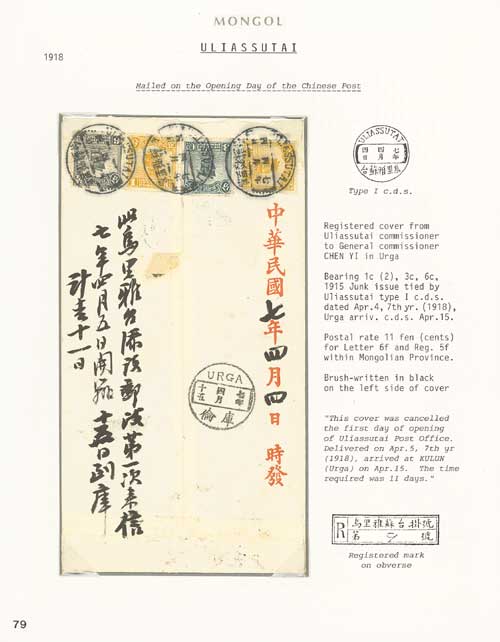 MONGOL
ULIASSUTAI
1918
Mailed on the Opening Day of the Chinese Post
ULIASSUTAI
ULIASSUTAI
ULIASSUTAI
中華民國七年四月四日 時發
此烏里雅台添設郵政第一次來信
七年四月五日開班 十五日到庫
計壹十一日
URGA
十五 四月 七年
倫庫
ULIASSUTAI
四日 四月 七年
台蘇雅里烏
Type I c.d.s.
Registered cover from
Uliassutai commissioner
to General commissioner
CHEN YI in Urga
Bearing 1c (2), 3c, 6c,
1915 Junk issue tied by
Uliassutai type I c.d.s.
dated Apr.4, 7th yr. (1918),
Urga arriv. c.d.s. Apr.15.
Postal rate 11 fen (cents)
for Letter 6f and Reg. 5f
within Mongolian Province.
Brush-written in black
on the left side of cover
"This cover was cancelled
the first day of opening
of Uliassutai Post Office.
Delivered on Apr.5, 7th yr
(1918), arrived at KULUN
(Urga) on Apr.15. The time
required was 11 days."
R 烏里雅蘇台掛號
第 號
Registered mark
on obverse
79